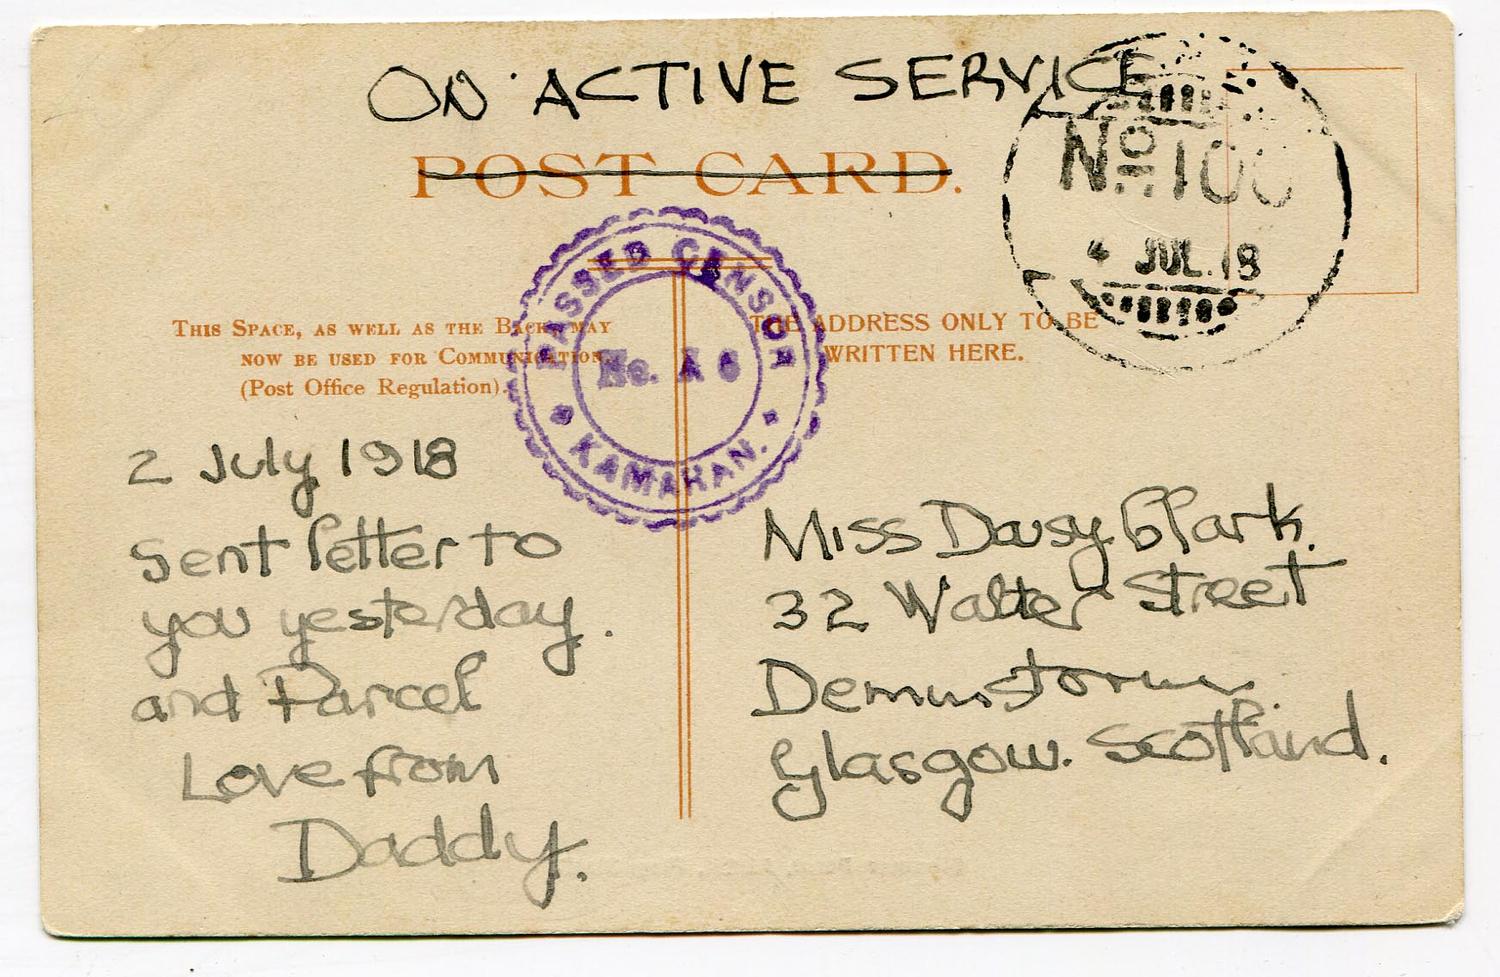 ON ACTIVE SERVICE
POST CARD.
No 100
4 JUL. 18
PASSED CENSOR
No. A 6
KAMARAN.
THIS SPACE, AS WELL AS THE BACK, MAY
NOW BE USED FOR COMMUNICATION.
(Post Office Regulation).
THE ADDRESS ONLY TO BE
WRITTEN HERE.
2 July 1918
Sent letter to
you yesterday.
and Parcel
Love from
Daddy.
Miss Daisy Clark.
32 Walter Street
Glasgow. Scotland.